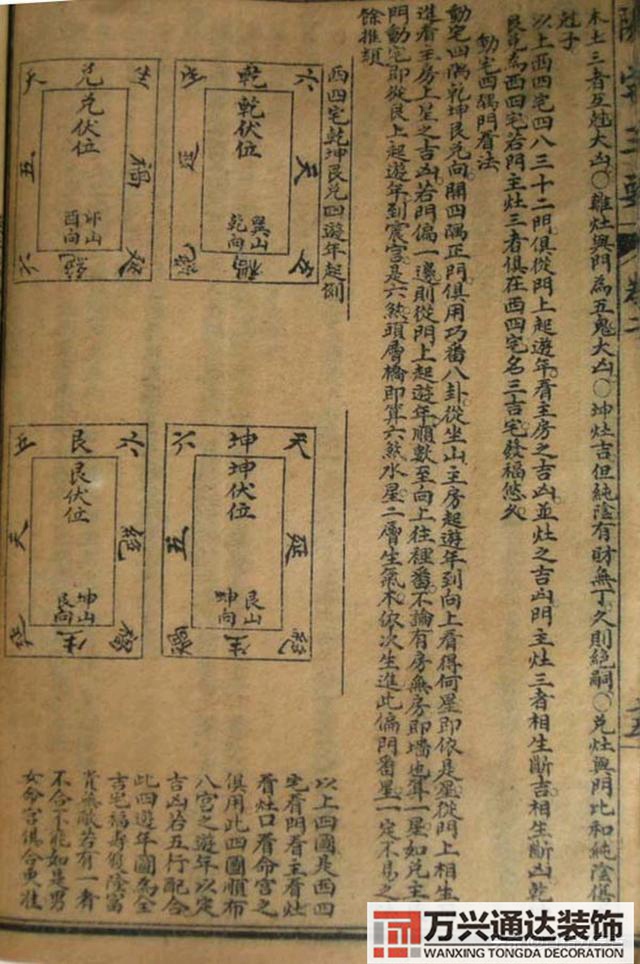 陽宅三要 卷二
木土三者互尅大凶○離灶與門為五鬼大凶○坤灶吉但純陰有財無丁久則絕嗣○兌灶與門比和純陰俱
尅子
以上西四宅四八三十二門俱從門上起遊年看主房之吉凶並灶之吉凶門主灶三者相生斷吉相尅斷凶乾
艮兌為西四宅若門主灶三者俱在西四宅名三吉宅發福悠久
動宅四隅門看法
動宅四隅乾坤艮兌向開四隅正門俱用巧番八卦從坐山主房起遊年到向上看得何星即依是星從門上相生
進看主房上星之吉凶若門偏一邊則從門上起遊年順數至向上往裡番不論有房無房即墻也算一星如兌主
門動宅即從艮上起遊年到震宮是六煞頭層橋即算六煞水星二層生氣木依次生進此偏門番星一定不易之
餘推類
西四宅乾坤艮兌四遊年起例
六 乾 五
乾伏位
巽山
乾向
天 五 禍 絕 延
生 兌 天
兌伏位
卯山
酉向
禍 延 絕 六 五
天 坤 六
坤伏位
艮山
坤向
延 絕 生 禍 五
六 艮 五
艮伏位
坤山
艮向
絕 禍 生 延 天
以上四圖是西四
宅看門看主看灶
看灶口看命宮之
俱用此四圖順布
八宮之遊年以定
吉凶若五行配合
此四遊年圖為全
吉宅福壽發陰富
貴無敵若有一者
不合不能如是男
女命宮俱合更准
万兴通达装饰
WANXING TONGDA DECORATION